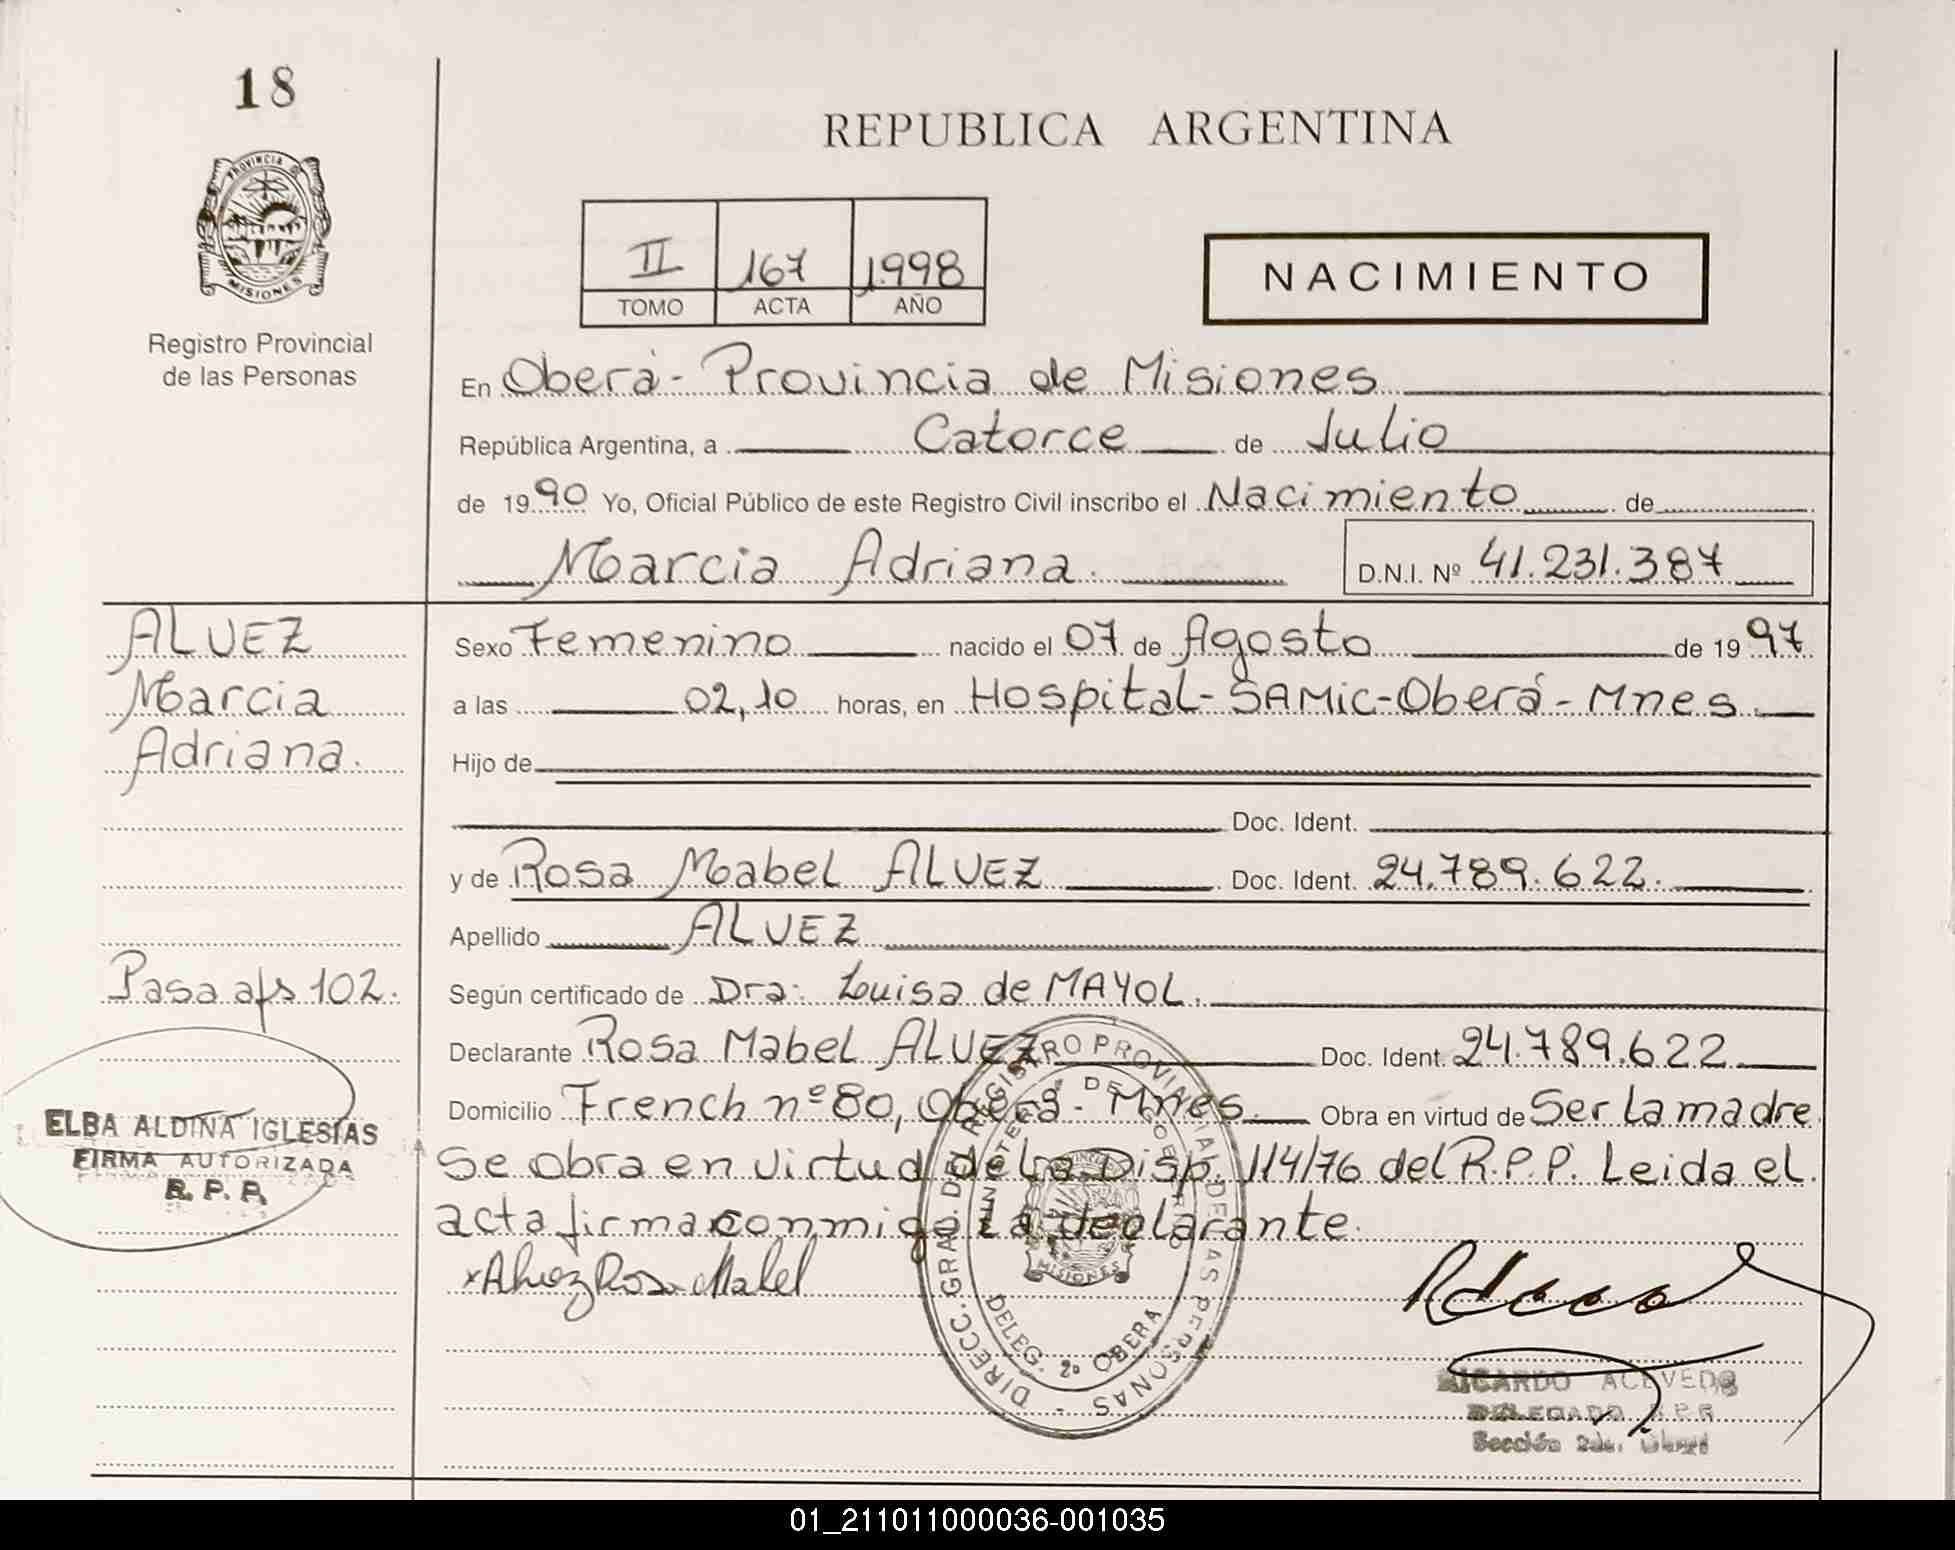 18
REPUBLICA ARGENTINA
PROVINCIA DE
MISIONES
Registro Provincial
de las Personas
II 167 1.998
TOMO ACTA AÑO
NACIMIENTO
En Oberá - Provincia de Misiones
República Argentina, a Catorce de Julio
de 1990 Yo, Oficial Público de este Registro Civil inscribo el Nacimiento de
Marcia Adriana. D.N.I. Nº 41.231.387
ALVEZ
Marcia
Adriana.
Pasa a fs 102.
ELBA ALDINA IGLESIAS
FIRMA AUTORIZADA
R. P. P.
Sexo Femenino nacido el 07 de Agosto de 1997
a las 02,10 horas, en Hospital - SAMic - Oberá - Mnes.
Hijo de
Doc. Ident.
y de Rosa Mabel ALVEZ Doc. Ident. 24.789.622.
Apellido ALVEZ
Según certificado de Dra: Luisa de MAYOL.
Declarante Rosa Mabel ALVEZ Doc. Ident. 24.789.622
Domicilio French nº 80, Oberá - Mnes. Obra en virtud de Ser la madre
Se obra en virtud de la Disp. 114/76 del R.P.P. Leida el
acta firma conmigo la declarante.
x Alvez Rosa Mabel
DIRECC. GRAL. DEL REGISTRO PROVINCIAL DE LAS PERSONAS
MINISTERIO DE GOBIERNO
MISIONES
DELEG. 2º OBERA
RICARDO ACEVEDO
DELEGADO R.P.P.
Sección 2da. Oberá
01_211011000036-001035